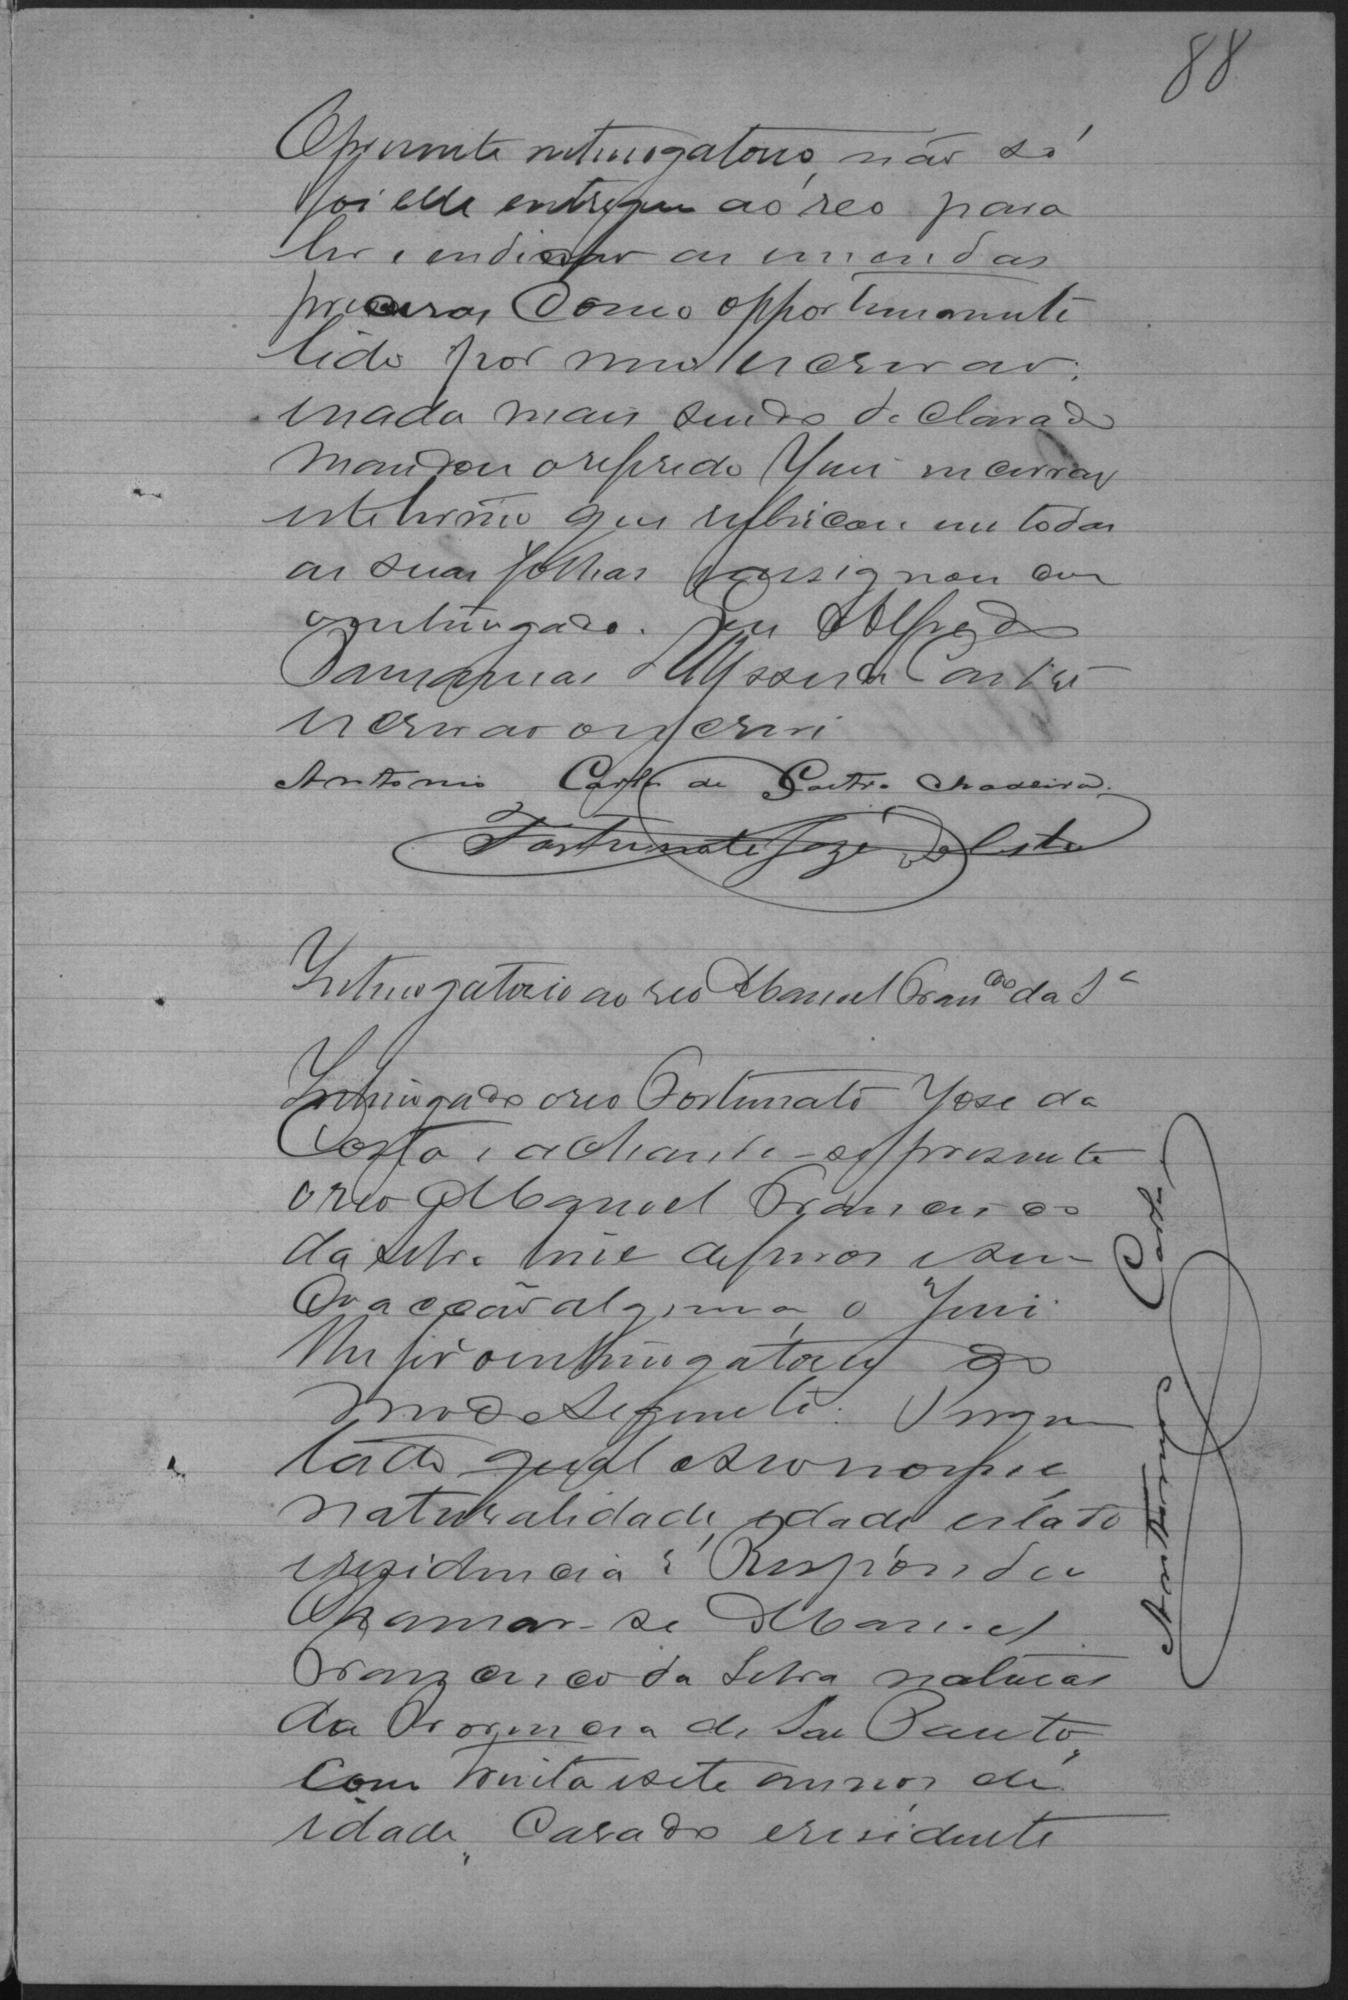 88
O presente interrogatorio, não só
foi elle entregue ao reo para
ler e indicar as emendas
precisas, como opportunamente
lido por mim escrivão;
e nada mais sendo declarado
mandou o referido Juiz encerrar
este termo que rubricou em todas
as suas folhas e assignou com
o interrogado. Eu Alfredo
escrivão o escrevi
Antonio Carlos de Castro Madeira.
Fortunato José da Costa
Interrogatorio ao reo Manuel Fran.co da S.a
Interrogado o reo Fortunato Jose da
Costa, e achando-se presente
o reo Manuel Francisco
da Silva livre de ferros e sem
coacção alguma, o Juiz
lhe fez o interrogatorio do
modo seguinte: Pergun
tado qual o seu nome,
naturalidade, edade, estado
e residencia? Respondeu
Chamar-se Manuel
Francisco da Silva natural
da Provincia de São Paulo,
com trinta e sete annos de
idade, casado e residente
Antonio Carlos